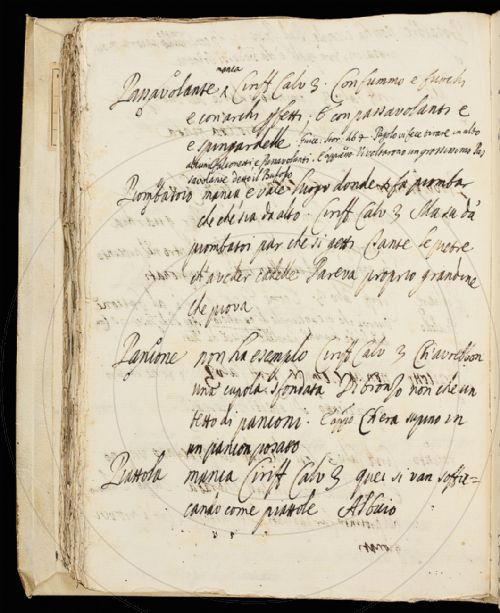 manca
Passavolante ^ Ciriff Calv 3. Con fummo e fuochi
e con archi offesi. E con passavolanti e
e spingardelle Guicc. Stor. lib 7. Pagolo vi fece tirare in alto
alcuni falconetti e passavolanti. E appresso Vi voltarono un grossissimo Pas
savolante detto il Bufolo
Piombatoio manca e vale luogo donde si fa piombar
che che sia da alto. Ciriff Calv 3 Ma su da
piombatoi par che si getti Tante le pietre
ch a veder cadelle Pareva proprio grandine
che piova
Pancione non ha esempio Ciriff Calv 3 Ch'avrebbon
una cupola sfondata Di bronzo non che un
tetto di pancioni. E appo Ch'era supino in
un pancion posato
Piattola manca Ciriff Calv 3 quei si van soffic=
cando come piattole Al buio